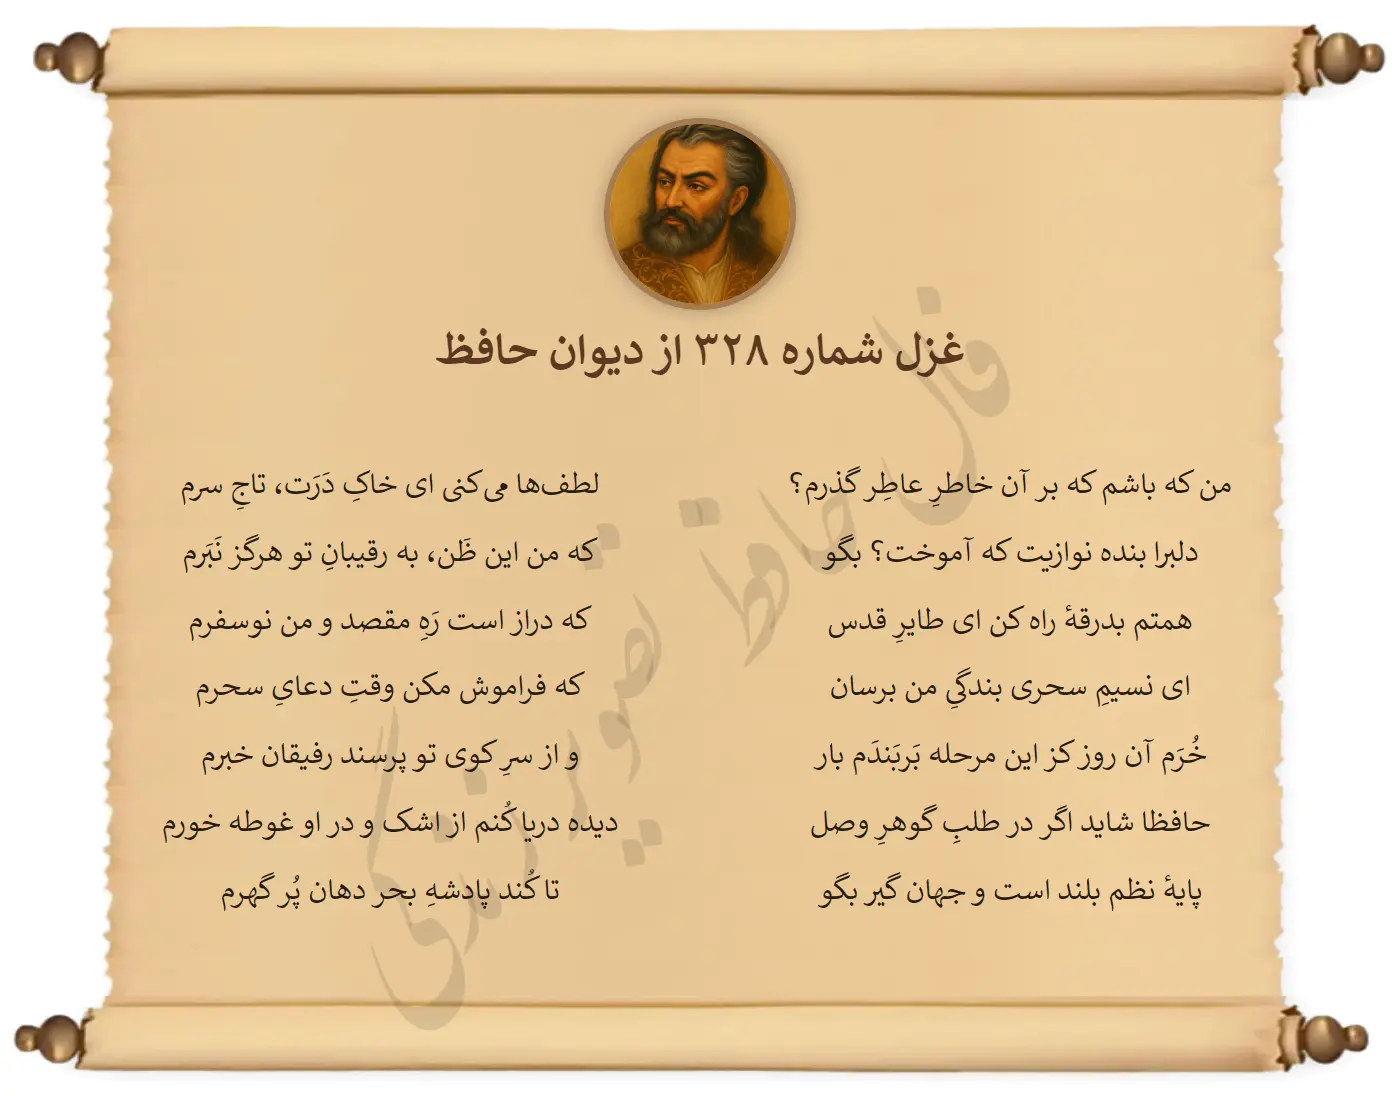 غزل شماره ۳۲۸ از دیوان حافظ
من که باشم که بر آن خاطرِ عاطِر گذرم؟
لطف‌ها می‌کنی ای خاکِ دَرَت، تاجِ سرم
دلبرا بنده نوازیت که آموخت؟ بگو
که من این ظَن، به رقیبانِ تو هرگز نَبَرم
همتم بدرقهٔ راه کن ای طایرِ قدس
که دراز است رَهِ مقصد و من نوسفرم
ای نسیمِ سحری بندگیِ من برسان
که فراموش مکن وقتِ دعایِ سحرم
خُرَم آن روز کز این مرحله بَربَندَم بار
و از سرِ کوی تو پرسند رفیقان خبرم
حافظا شاید اگر در طلبِ گوهرِ وصل
دیده دریا کُنم از اشک و در او غوطه خورم
پایهٔ نظم بلند است و جهان گیر بگو
تا کُند پادشهِ بحر دهان پُر گهرم
فال حافظ تصویر زندگی